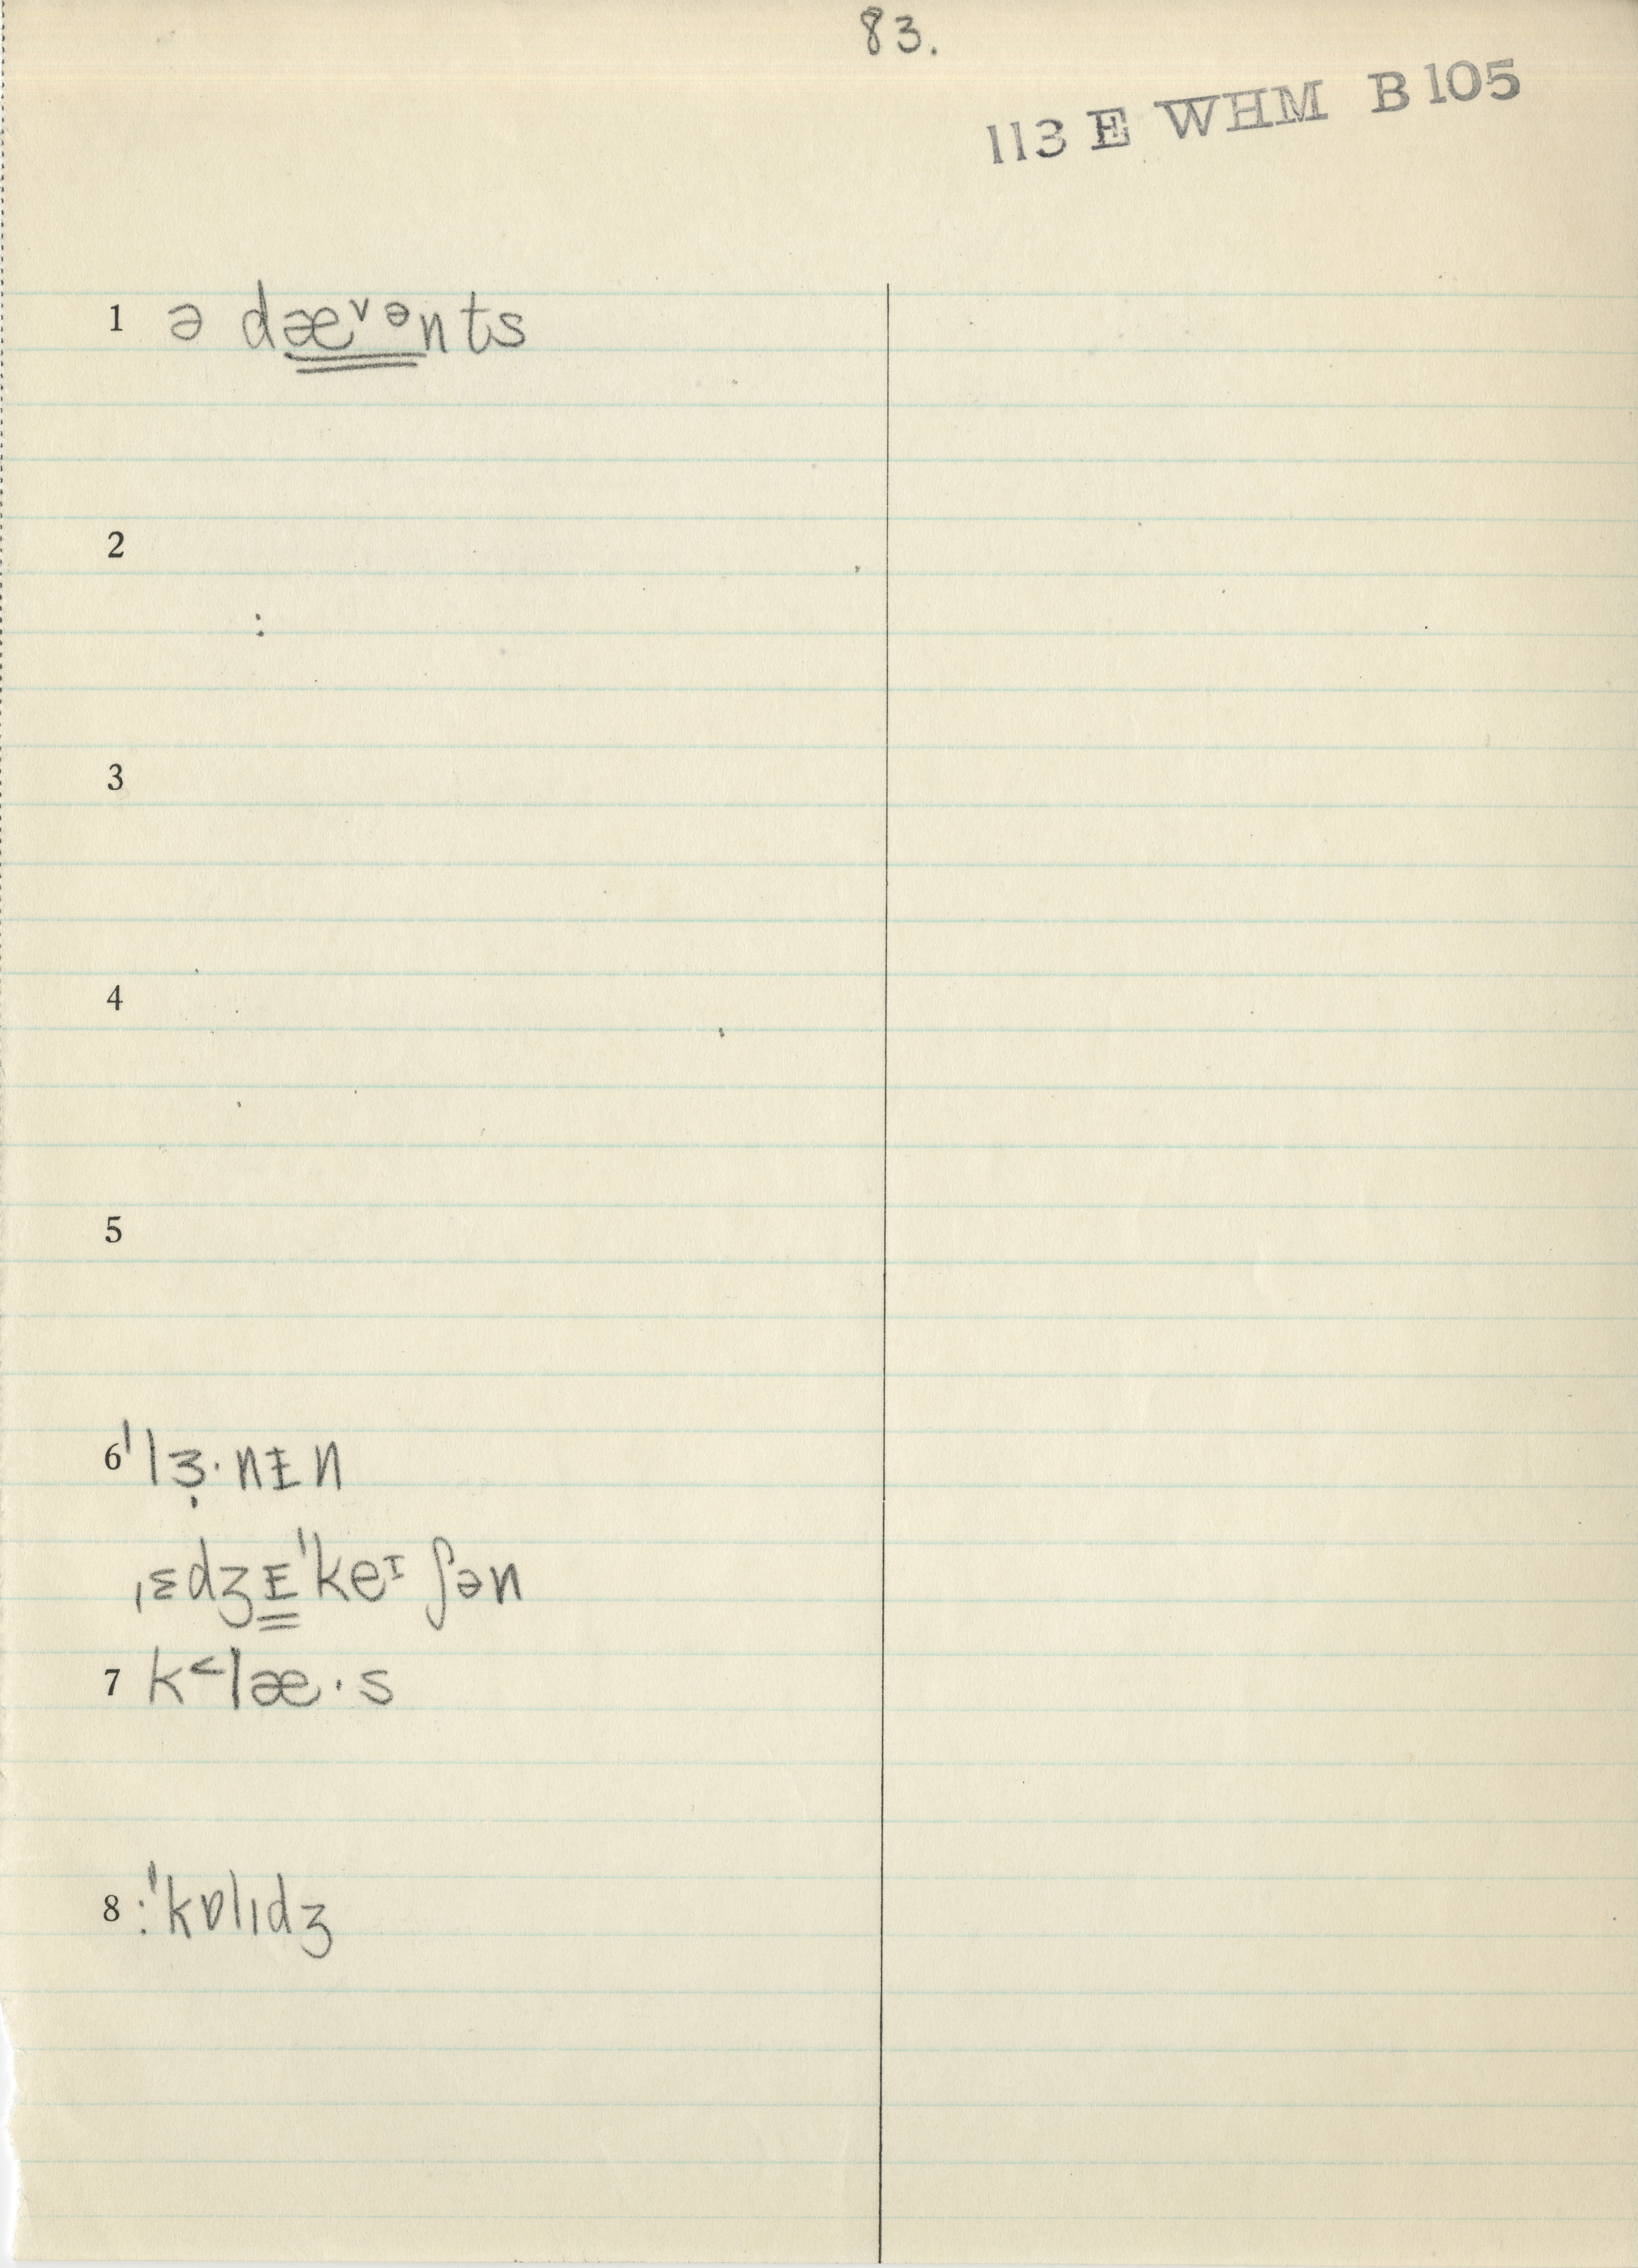 83.
113 E WHM B105
1 ə dæ̳ᵛᵊnts
2
:
3
4
5
6 ˈlɜ̣·nɪ̵n
ˌɛdʒᵻ̳ˈkeᶦʃən
7 k˂læ·s
8 :ˈkɒlɪdʒ